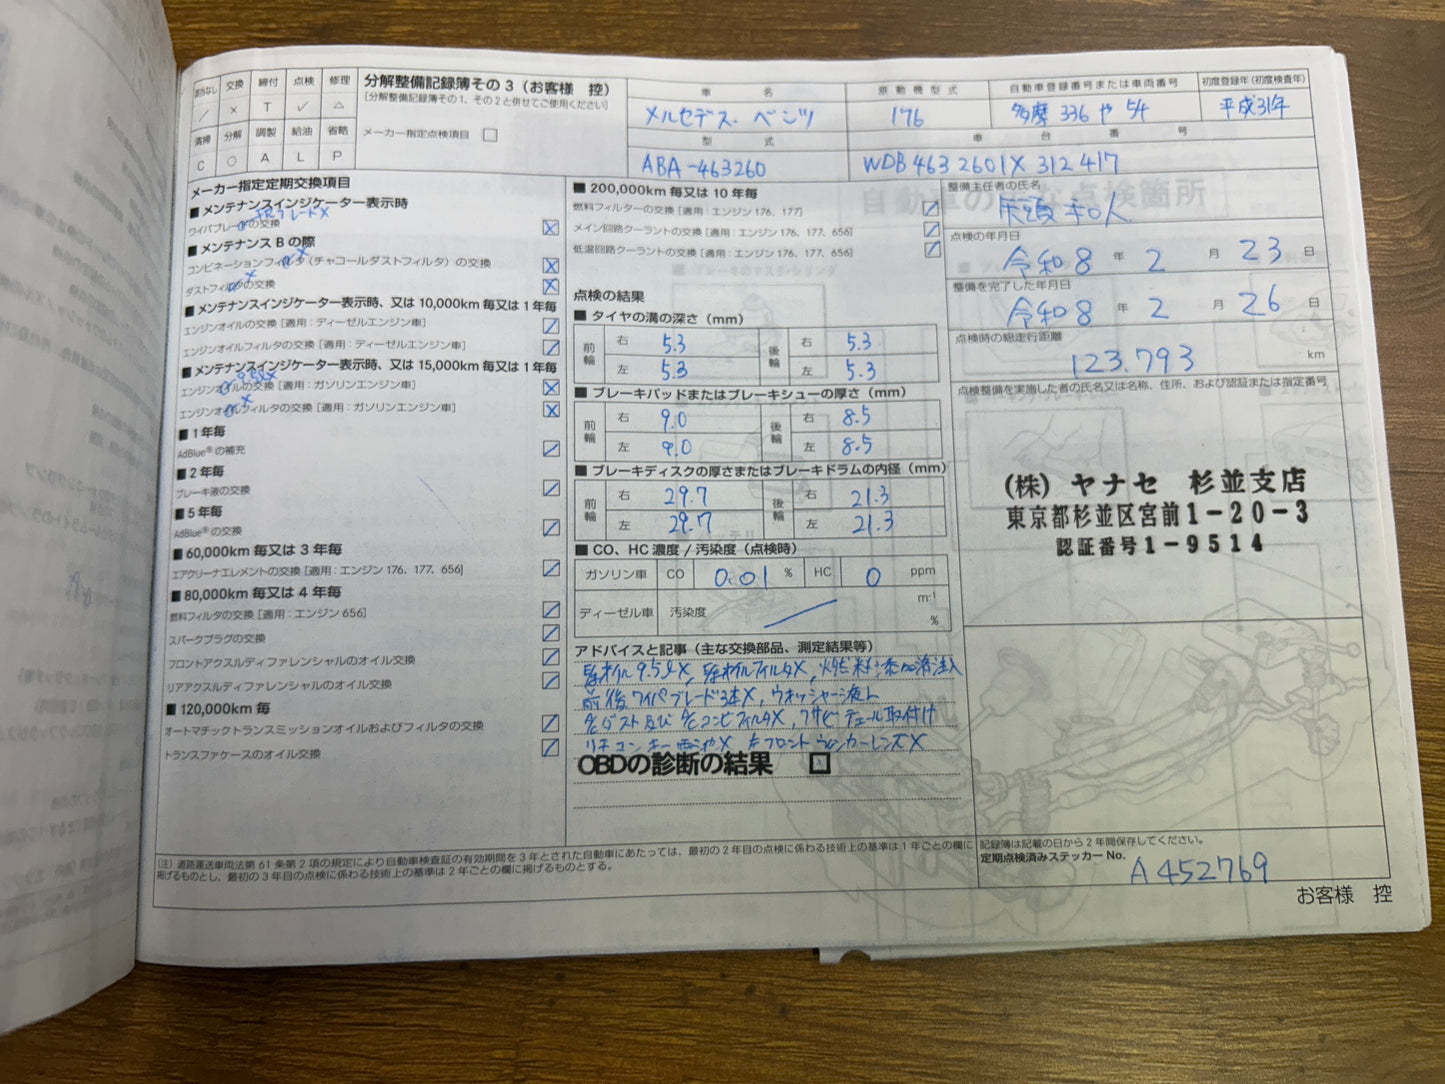 該当なし 交換 締付 点検 修理
／ × T ✓ △
清掃 分解 調整 給油 省略
C ○ A L P
分解整備記録簿その3（お客様 控）
［分解整備記録簿その1、その2と併せてご使用ください］
メーカー指定点検項目 □
車名 メルセデス・ベンツ
原動機型式 176
自動車登録番号または車両番号 多摩 336 や 54
初度登録年（初度検査年） 平成31年
型式 ABA-463260
車台番号 WDB4632601X312417
メーカー指定定期交換項目
■ メンテナンスインジケーター表示時
FRブレードX
ワイパブレードの交換
■ メンテナンス B の際
コンビネーションフィルタ（チャコールダストフィルタ）の交換
ダストフィルタの交換
■ メンテナンスインジケーター表示時、又は 10,000km 毎又は 1 年毎
エンジンオイルの交換［適用：ディーゼルエンジン車］
エンジンオイルフィルタの交換［適用：ディーゼルエンジン車］
■ メンテナンスインジケーター表示時、又は 15,000km 毎又は 1 年毎
9.5ℓX
エンジンオイルの交換［適用：ガソリンエンジン車］
エンジンオイルフィルタの交換［適用：ガソリンエンジン車］
■ 1 年毎
AdBlue® の補充
■ 2 年毎
ブレーキ液の交換
■ 5 年毎
AdBlue® の交換
■ 60,000km 毎又は 3 年毎
エアクリーナエレメントの交換［適用：エンジン 176、177、656］
■ 80,000km 毎又は 4 年毎
燃料フィルタの交換［適用：エンジン 656］
スパークプラグの交換
フロントアクスルディファレンシャルのオイル交換
リアアクスルディファレンシャルのオイル交換
■ 120,000km 毎
オートマチックトランスミッションオイルおよびフィルタの交換
トランスファケースのオイル交換
■ 200,000km 毎又は 10 年毎
燃料フィルターの交換［適用：エンジン 176、177］
メイン回路クーラントの交換［適用：エンジン 176、177、656］
低温回路クーラントの交換［適用：エンジン 176、177、656］
点検の結果
■ タイヤの溝の深さ（mm）
前輪 右 5.3 後輪 右 5.3
左 5.3 左 5.3
■ ブレーキパッドまたはブレーキシューの厚さ（mm）
前輪 右 9.0 後輪 右 8.5
左 9.0 左 8.5
■ ブレーキディスクの厚さまたはブレーキドラムの内径（mm）
前輪 右 29.7 後輪 右 21.3
左 29.7 左 21.3
■ CO、HC 濃度 / 汚染度（点検時）
ガソリン車 CO 0.01 % HC 0 ppm
ディーゼル車 汚染度 m⁻¹
%
アドバイスと記事（主な交換部品、測定結果等）
オイル9.5ℓX, オイルフィルタX, 燃料添加済注入
前後ワイパブレード3本X, ウオッシャー液L
ダスト及びコンビフィルタX, ワサビデュール取付け
リモコンキー電池X 左フロントウィンカーレンズX
OBDの診断の結果 □
整備主任者の氏名
点検の年月日
令和8 年 2 月 23 日
整備を完了した年月日
令和8 年 2 月 26 日
点検時の総走行距離
123,793 km
点検整備を実施した者の氏名又は名称、住所、および認証または指定番号
(株) ヤナセ 杉並支店
東京都杉並区宮前1-20-3
認証番号1-9514
（注）道路運送車両法第 61 条第 2 項の規定により自動車検査証の有効期間を 3 年とされた自動車にあたっては、最初の 2 年目の点検に係わる技術上の基準は 1 年ごとの欄に
掲げるものとし、最初の 3 年目の点検に係わる技術上の基準は 2 年ごとの欄に掲げるものとする。
記録簿は記載の日から 2 年間保存してください。
定期点検済みステッカー No.
A452769
お客様 控